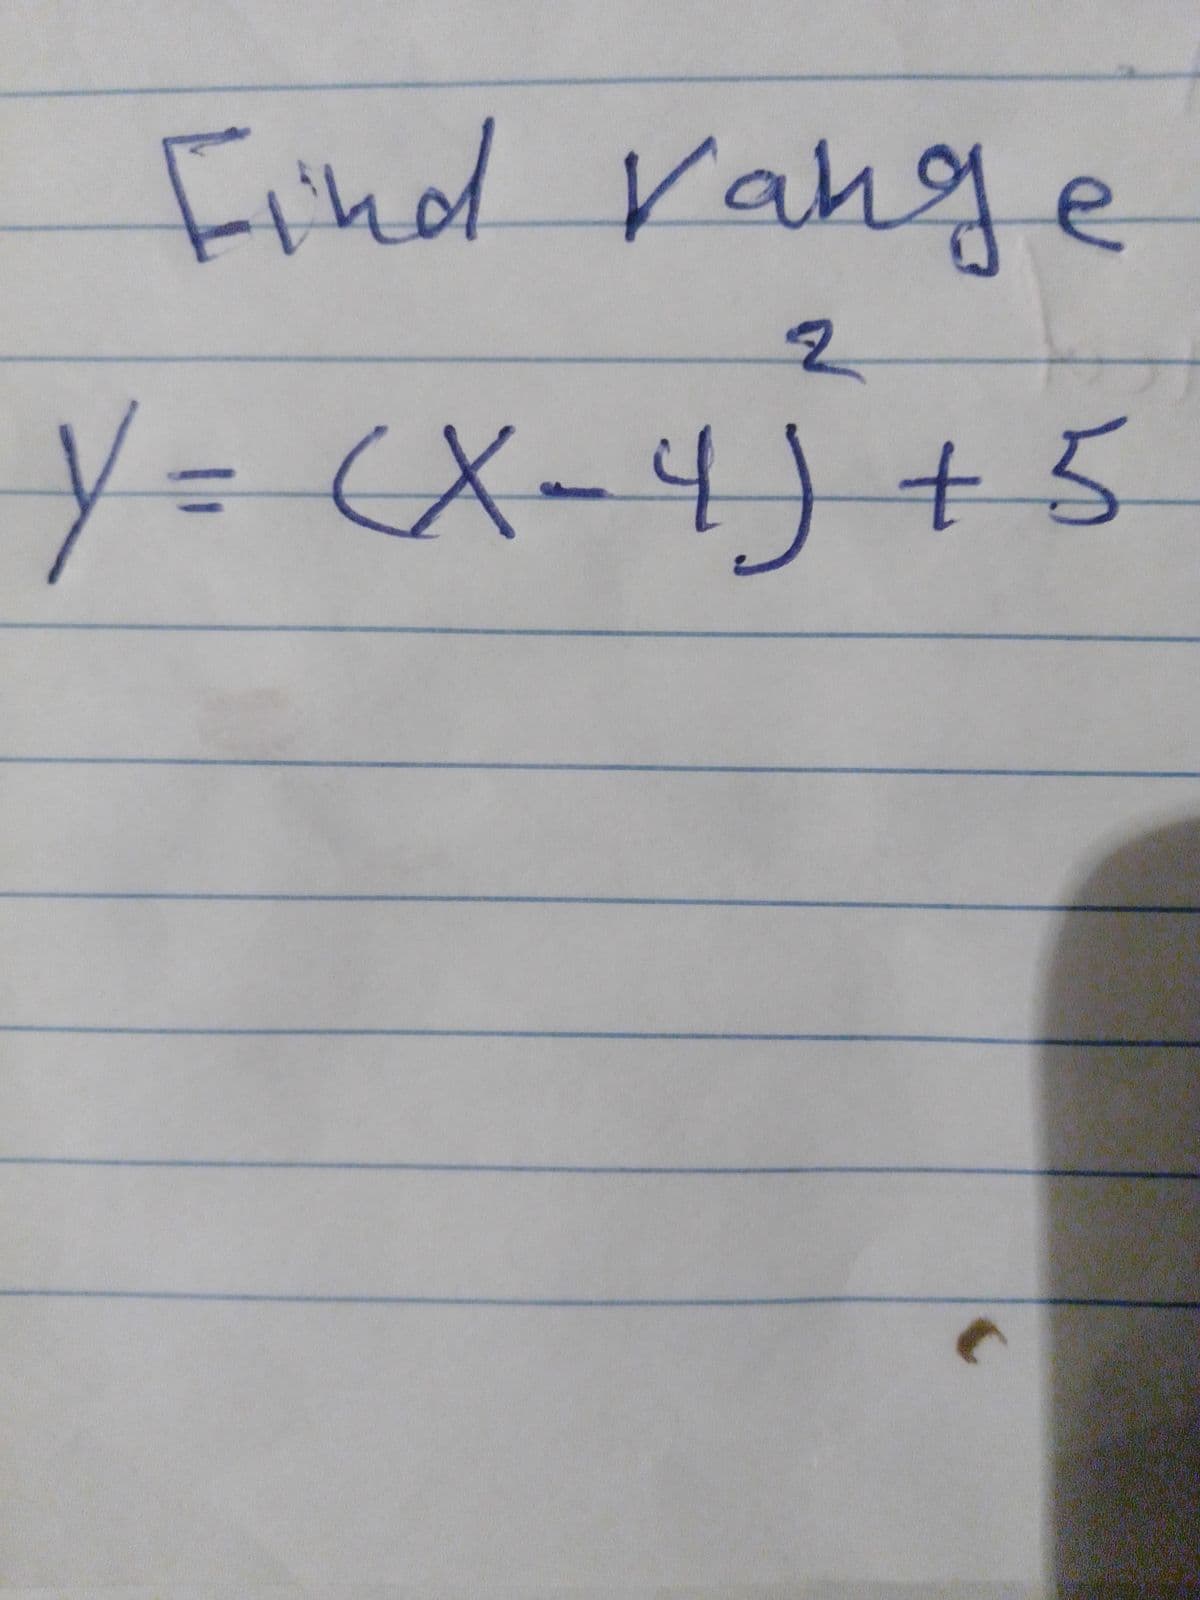 Find range
y = (x-4)² + 5